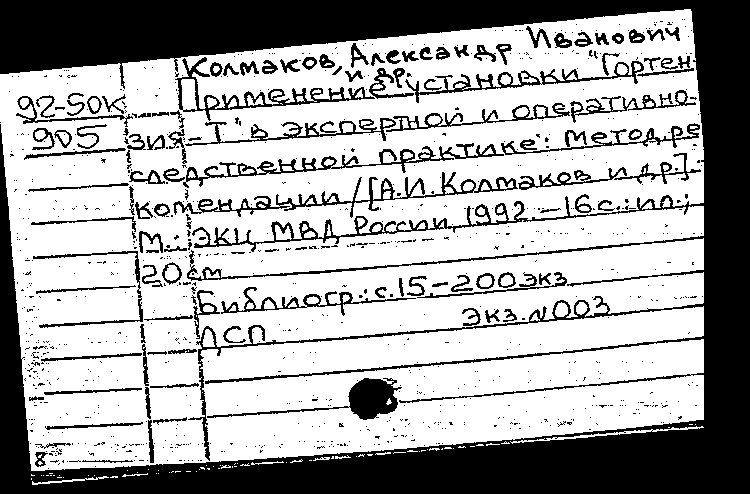 Колмаков, Александр Иванович
и др.
92-50к Применение установки "Гортен-
905 зия-Т" в экспертной и оперативно-
следственной практике: Метод. ре
комендации / [А.И. Колмаков и др.].-
М.: ЭКЦ МВД России, 1992.-16 с.: ил.;
20 см
Библиогр.: с. 15.-200 экз.
ДСП. Экз. №003
8